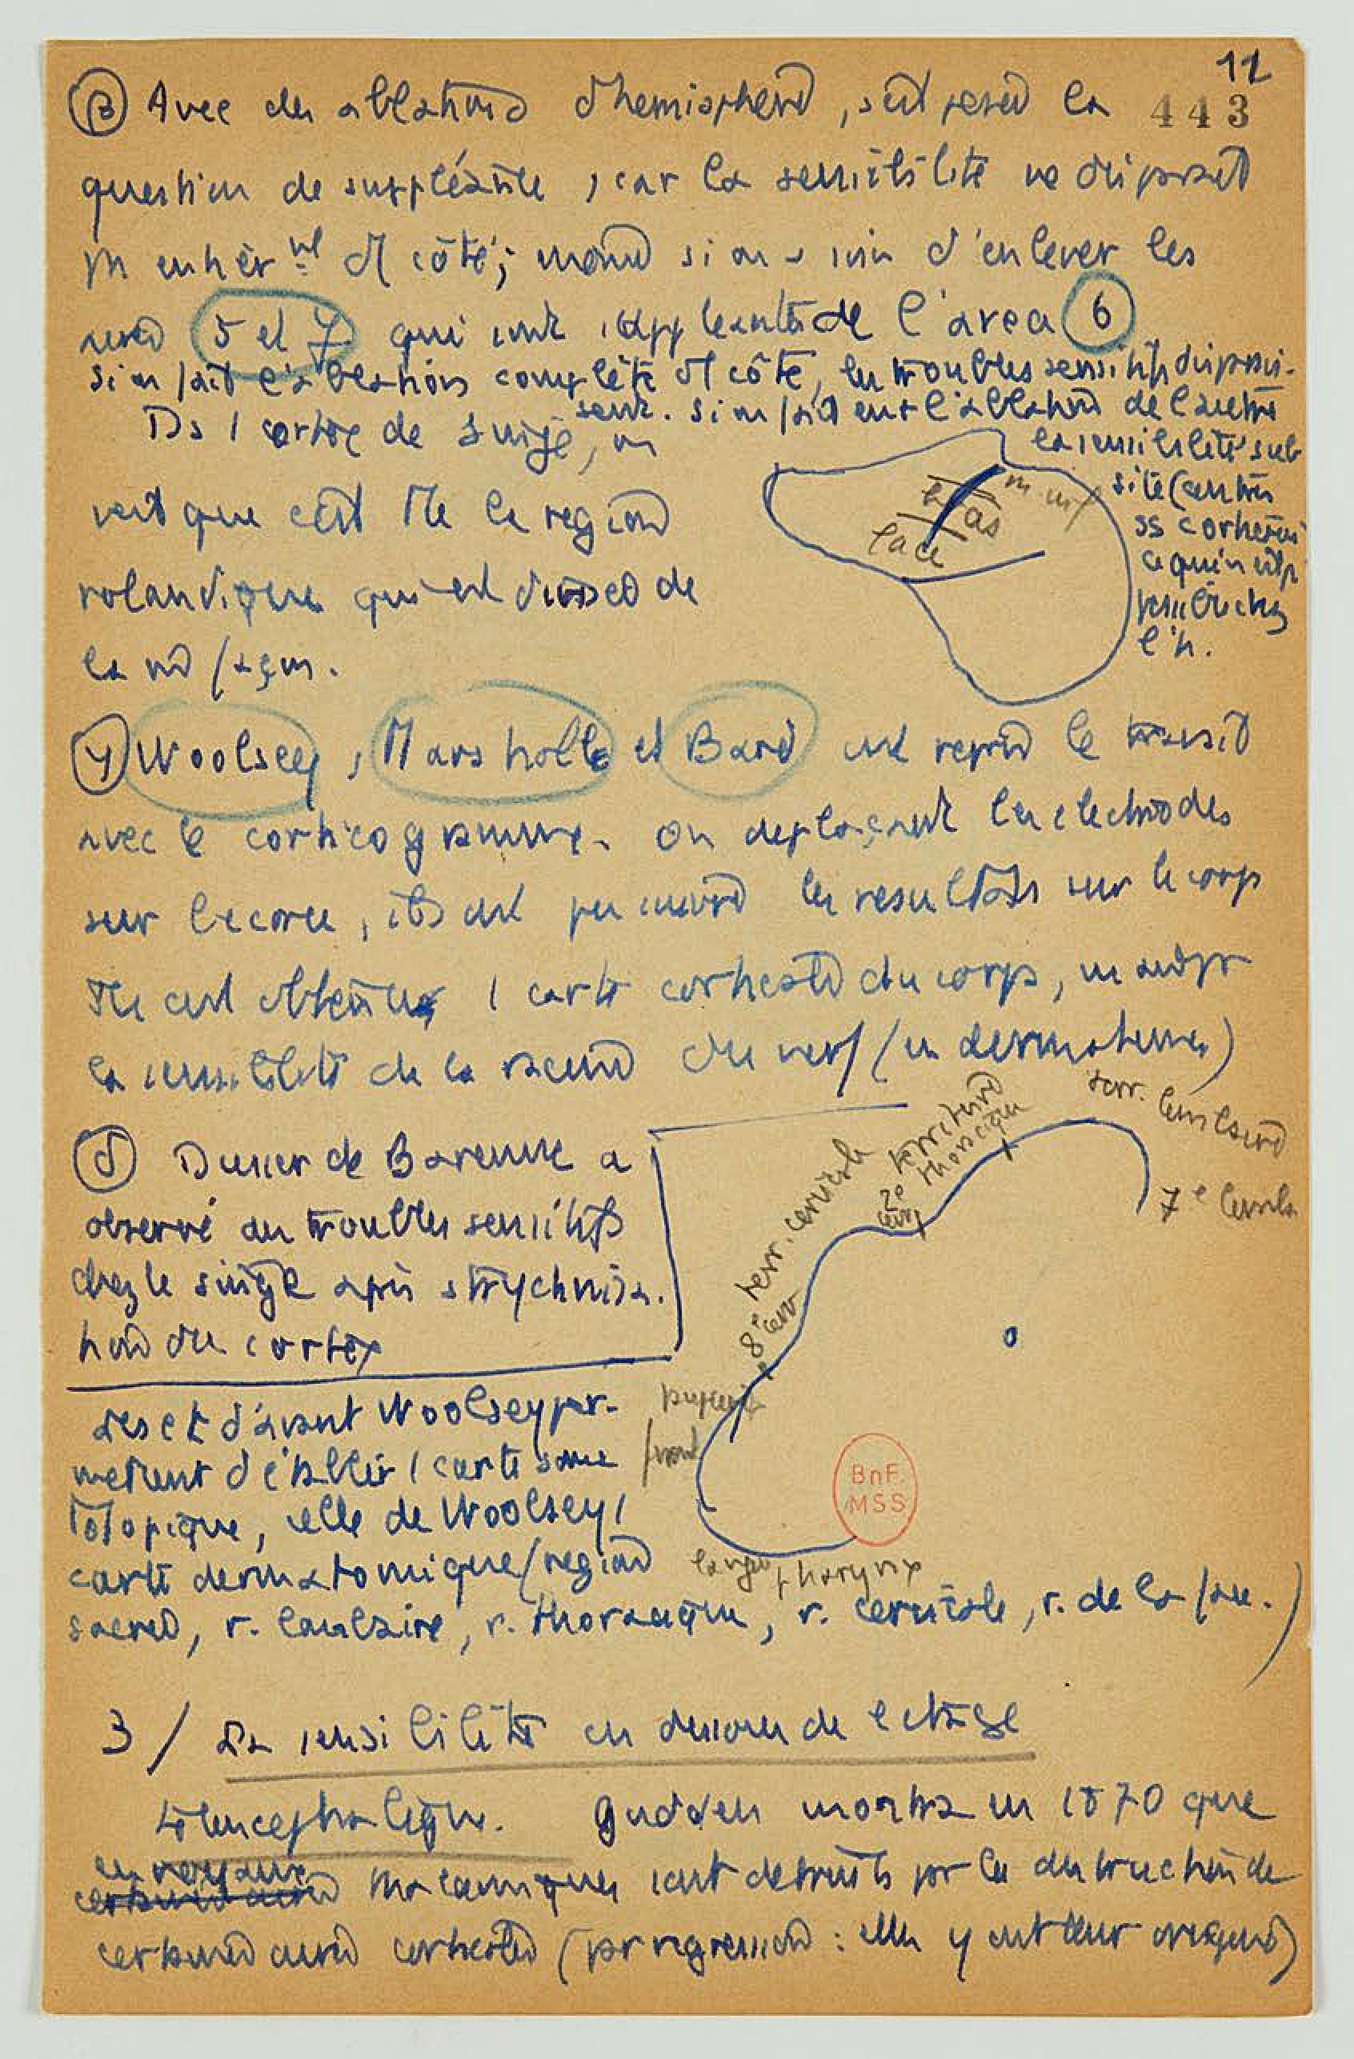 11
443
β Avec des ablations d'hemisphere, s'est posée la
question de suppléance, car la sensibilité ne disparaît
entièrmt d'1 côté; même si on a soin d'enlever les
aires 5 et 7 qui sont suppléantes de l'area 6
si on fait l'ablation complète d'1 côté, les troubles sensitifs disparais-
sent. si on fait ens l'ablation de l'autre
la sensibilité sub
siste (centres
ss corticaux
ce qui n'est p
possible chez
l'h.
Ds 1 cortex de singe, on
voit que c'est tte la region
rolandique qui est divisée de
la m façon.
m. inf
bras
face
γ Woolsey, Marshall et Bard ont repris le travail
avec le corticogramme. On deplaçant les electrodes
sur l'ecorce, ils ont pu suivre les resultats sur le corps
Ils ont obtenu 1 carte corticale du corps,
la sensibilité de la racine du nerf (en dermatomes)
δ Dusser de Barenne a
observé des troubles sensitifs
chez le singe après strychnisa-
tion du cortex
Les ct d'avant Woolsey per-
mettent d'établir 1 carte soma
totopique, celle de Woolsey 1
carte dermatomique (region
sacrée, r. lombaire, r. thoracique, r. cervicale, r. de la face.)
terr. lombaire
7e lomb.
territoire
thoracique
2e
terr. cervicale
8e cerv
front
larynx pharynx
BnF
MSS
3/ La sensibilité en dessous de l'etage
telencephalique. Gudden montra en 1870 que
les noyaux
thalamiques sont detruits par la destruction de
certaines aires corticales (par regression : elles y ont leur origine)